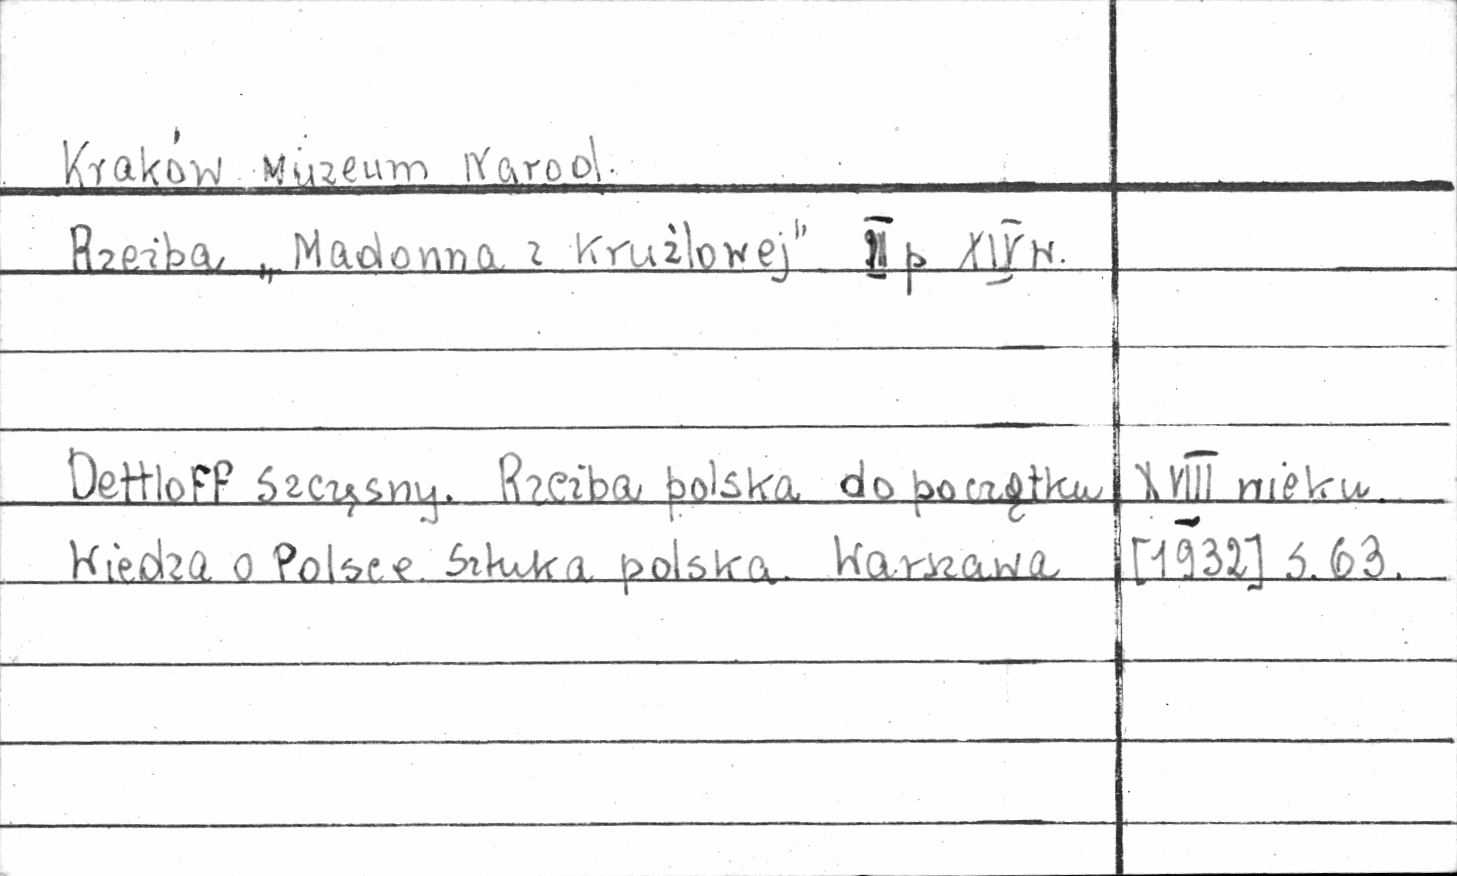 Kraków Muzeum Narod.
Rzeźba „Madonna z Krużlowej" II p XIV w.
Dettloff Szczęsny. Rzeźba polska do początku XVIII wieku.
Wiedza o Polsce Sztuka polska. Warszawa [1932] s. 63.